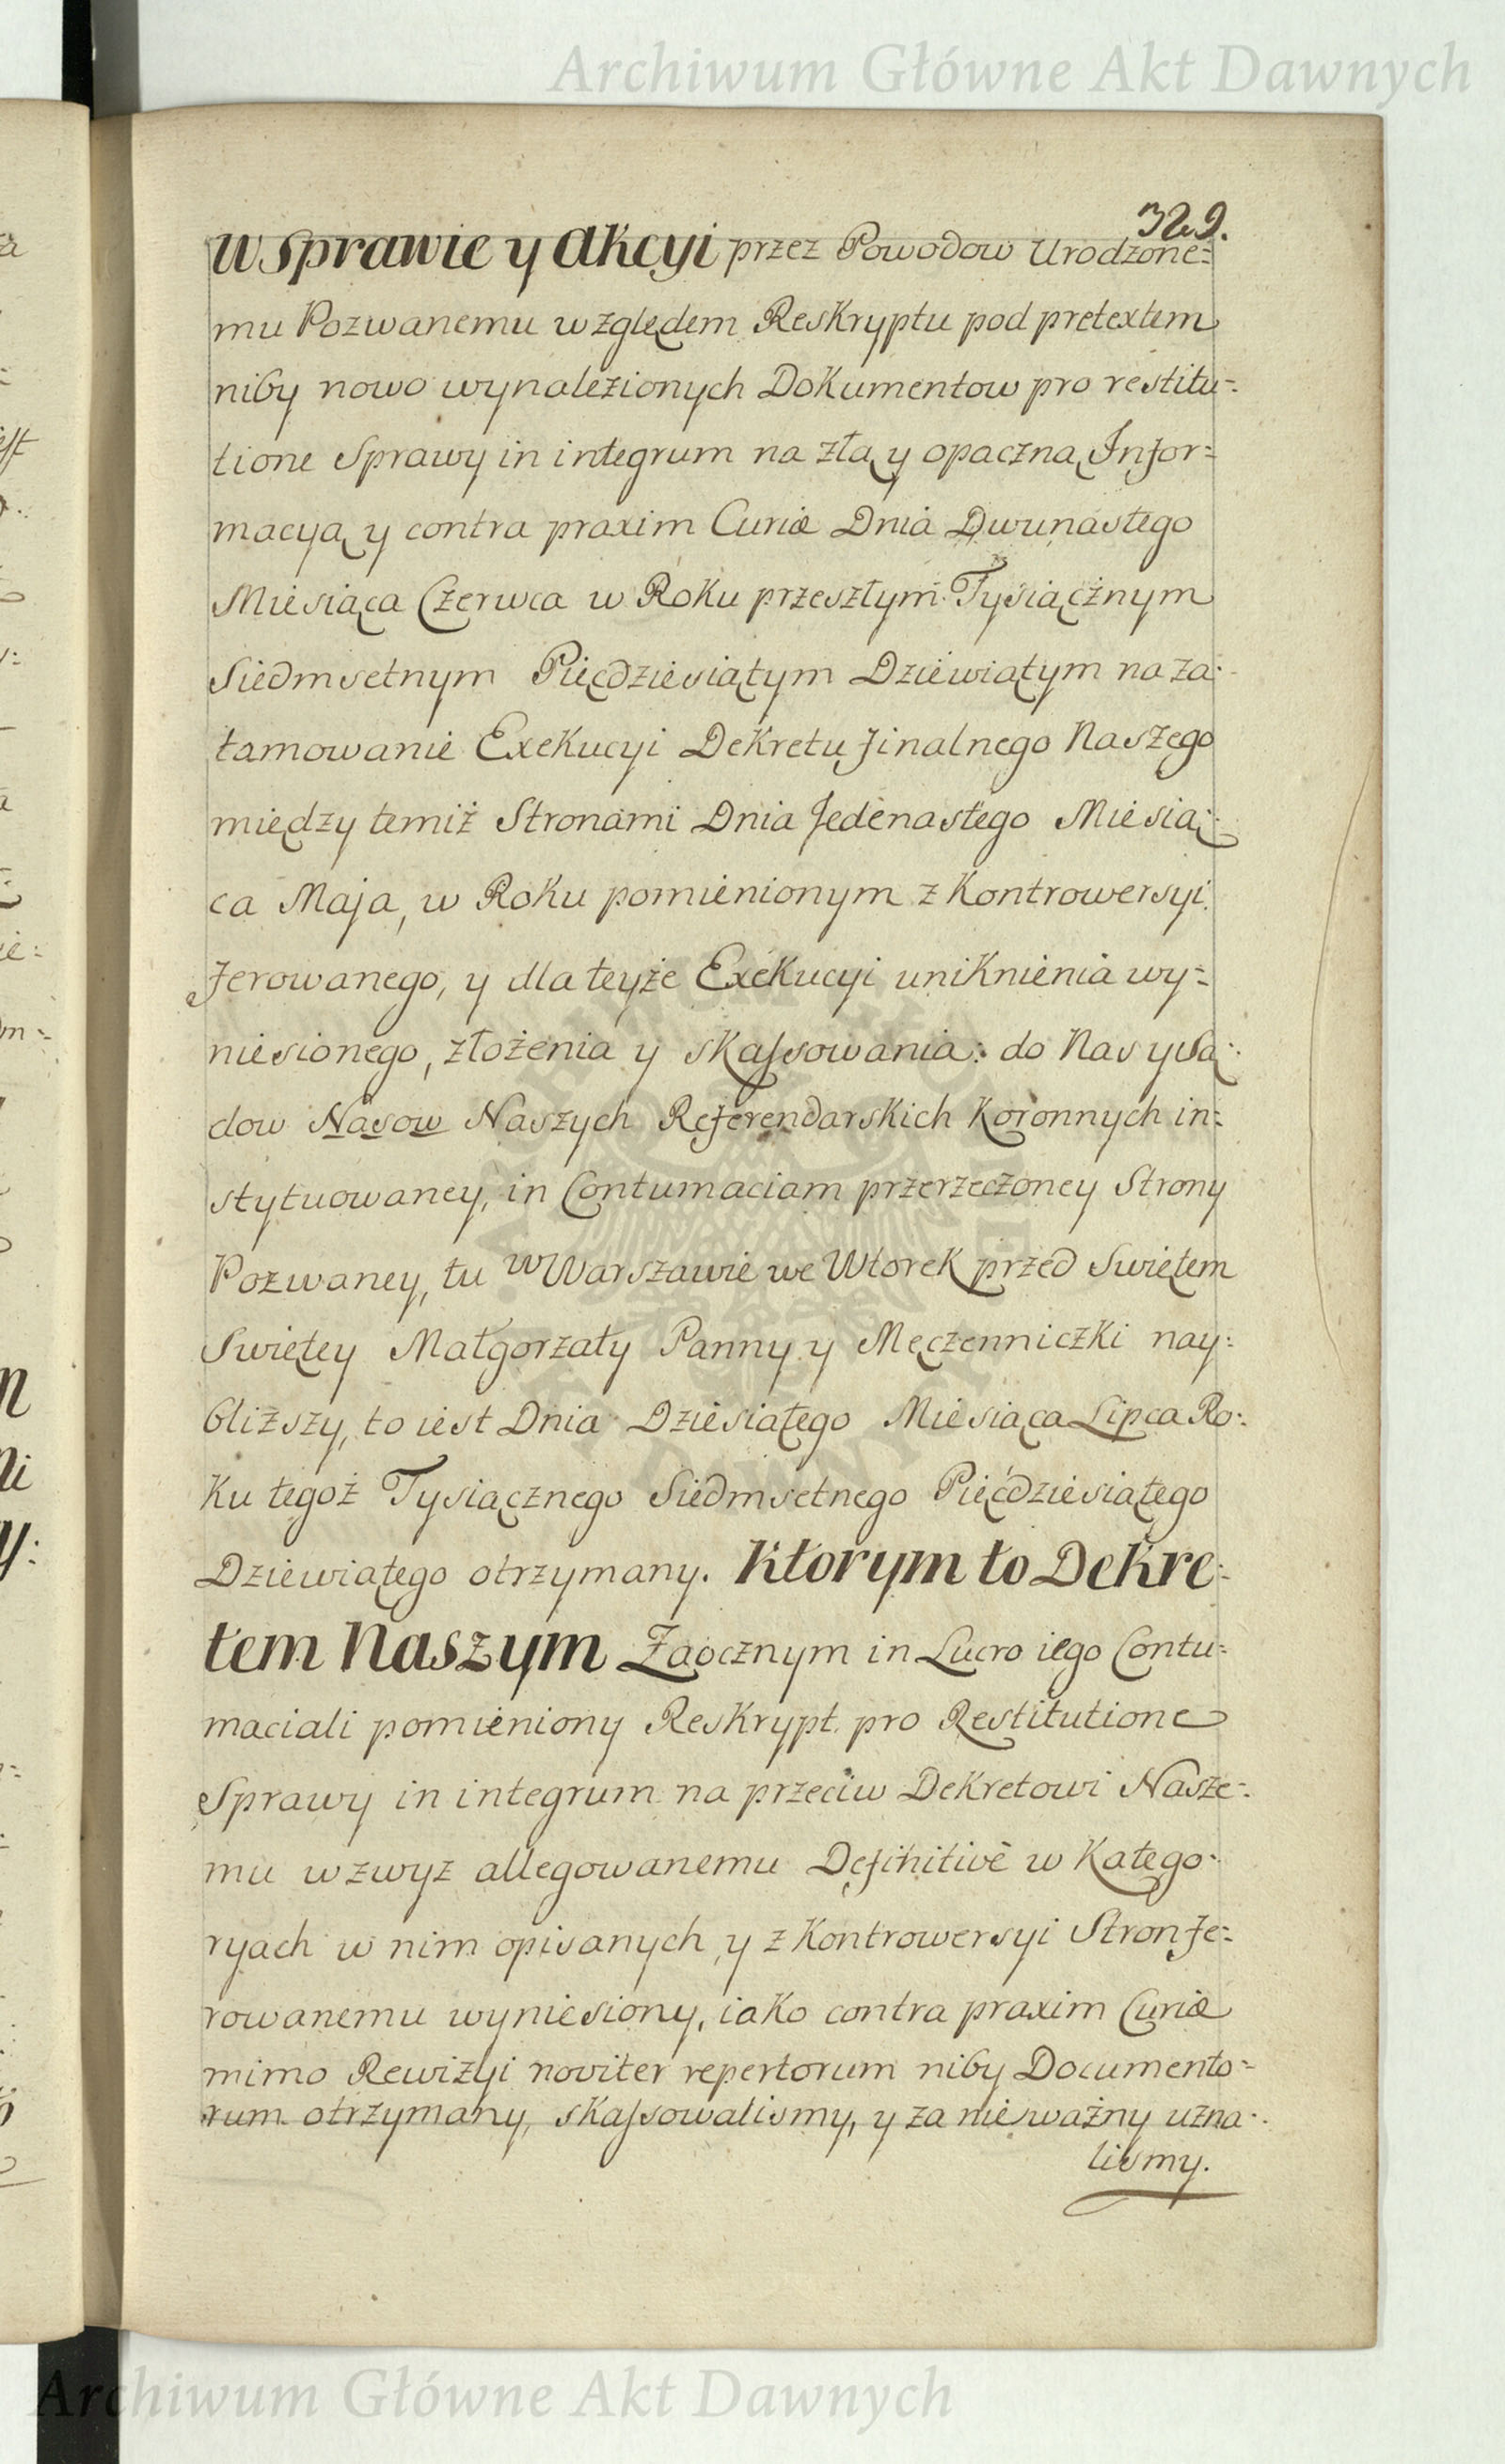 Archiwum Główne Akt Dawnych
329.
W Sprawie y Akcyi przez Powodow Urodzone=
mu Pozwanemu względem Reskryptu pod pretextem
niby nowo wynalezionych Dokumentow pro restitu=
tione Sprawy in integrum na złą y opaczną Infor=
macyą y contra praxim Curiæ Dnia Dwunastego
Miesiąca Czerwca w Roku przeszłym Tysiącznym
Siedmsetnym Pięcdziesiątym Dziewiątym na za=
tamowanie Exekucyi Dekretu finalnego Naszego
między temiż Stronami Dnia Jedenastego Miesią=
ca Maja, w Roku pomienionym z Kontrowersyi
ferowanego, y dla teyże Exekucyi uniknienia wy=
niesionego, złożenia y skassowania: do Nas y Są=
dow Nasow Naszych Referendarskich Koronnych in=
stytuowaney, in Contumaciam przerzeczoney Strony
Pozwaney, tu w Warszawie we Wtorek przed Swiętem
Swiętey Małgorzaty Panny y Męczenniczki nay=
bliższy, to iest Dnia Dziesiątego Miesiąca Lipca Ro=
ku tegoż Tysiącznego Siedmsetnego Pięćdziesiątego
Dziewiątego otrzymany. Ktorym to Dekre=
tem Naszym Zaocznym in Lucro iego Contu=
maciali pomieniony Reskrypt pro Restitutione
Sprawy in integrum na przeciw Dekretowi Nasze=
mu wzwyz allegowanemu Definitivè w Katego=
ryach w nim opisanych y z Kontrowersyi Stron fe=
rowanemu wyniesiony, iako contra praxim Curiæ
mimo Rewizyi noviter repertorum niby Documento=
rum otrzymany, skassowalismy, y za nieważny uzna=
lismy.
Archiwum Główne Akt Dawnych